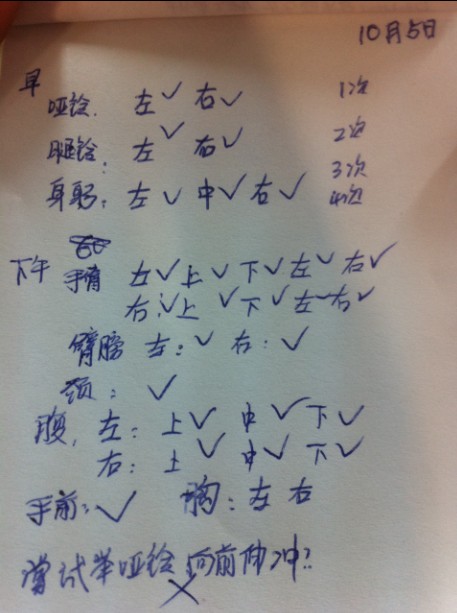 10月5日
早
哑铃. 左✓ 右✓ 1次
腿铃. 左✓ 右✓ 2次
3次
身躬: 左✓ 中✓ 右✓ 4次
下午 手臂 左✓上✓下✓左✓右✓
右:✓上✓下✓左✓右✓
臂膀 左:✓ 右:✓
颈:✓
腹, 左: 上✓ 中✓ 下✓
右: 上✓ 中✓ 下✓
手前:✓ 胸: 左 右
尝试举哑铃 向前伸冲?
✗